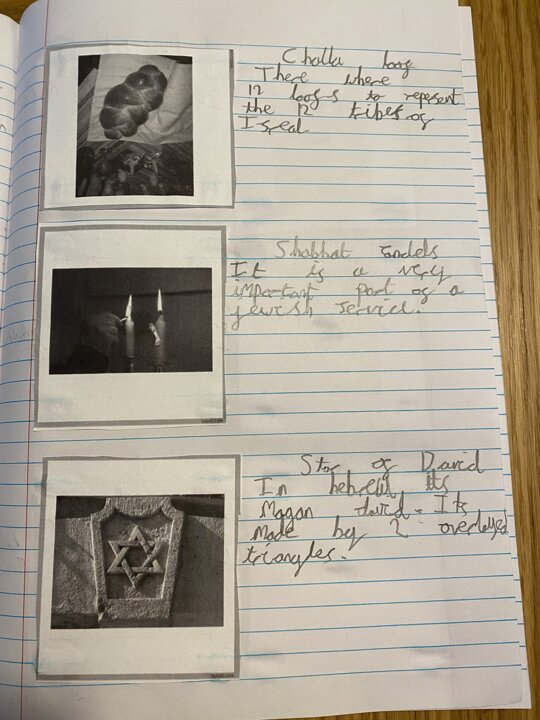 Challa loog
There where
12 loogs to repesent
the 12 tibes og
Isreal.
Shabbat candels
It is a very
important part og a
jewish service.
Star og David
In hebrew its
Magan david. Its
made by 2 overlayed
triangles.